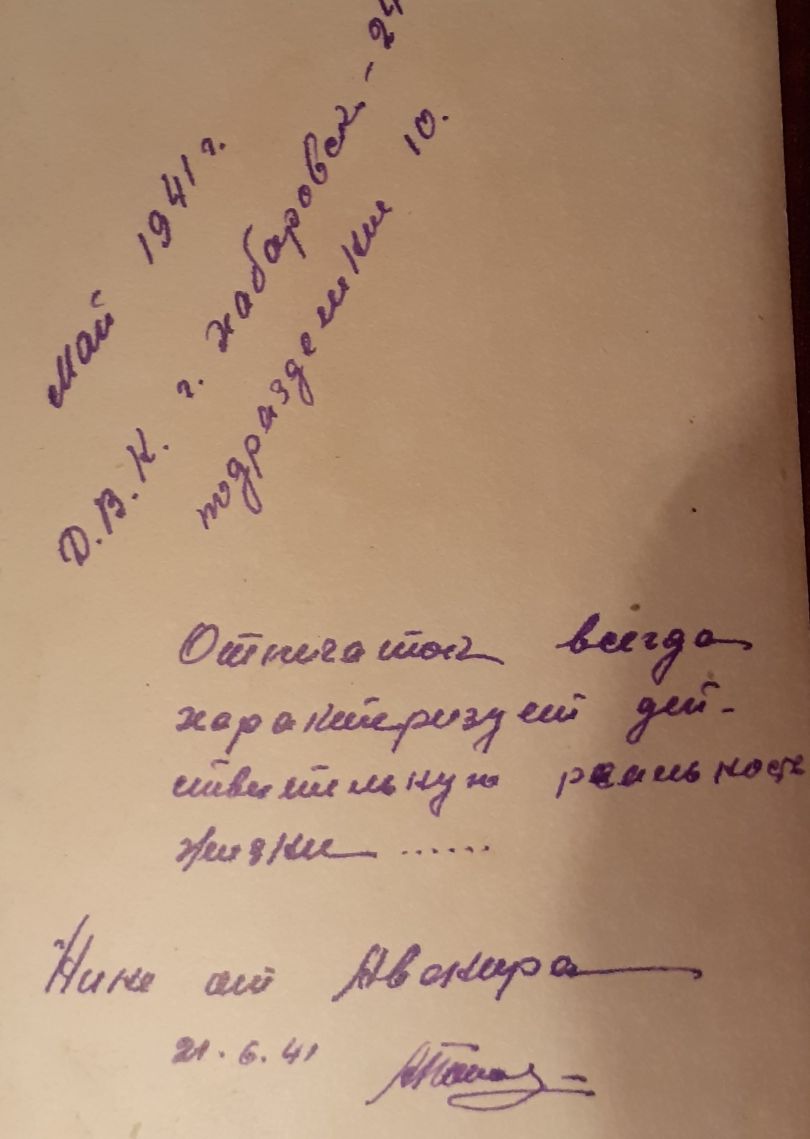 май 1941 г.
Д.В.К. г. хабаровск - 24
подразделки 10.
Отпечаток всегда
характеризует дей-
ствительную реальность
жизни ......
Нине от Авенира
21.6.41